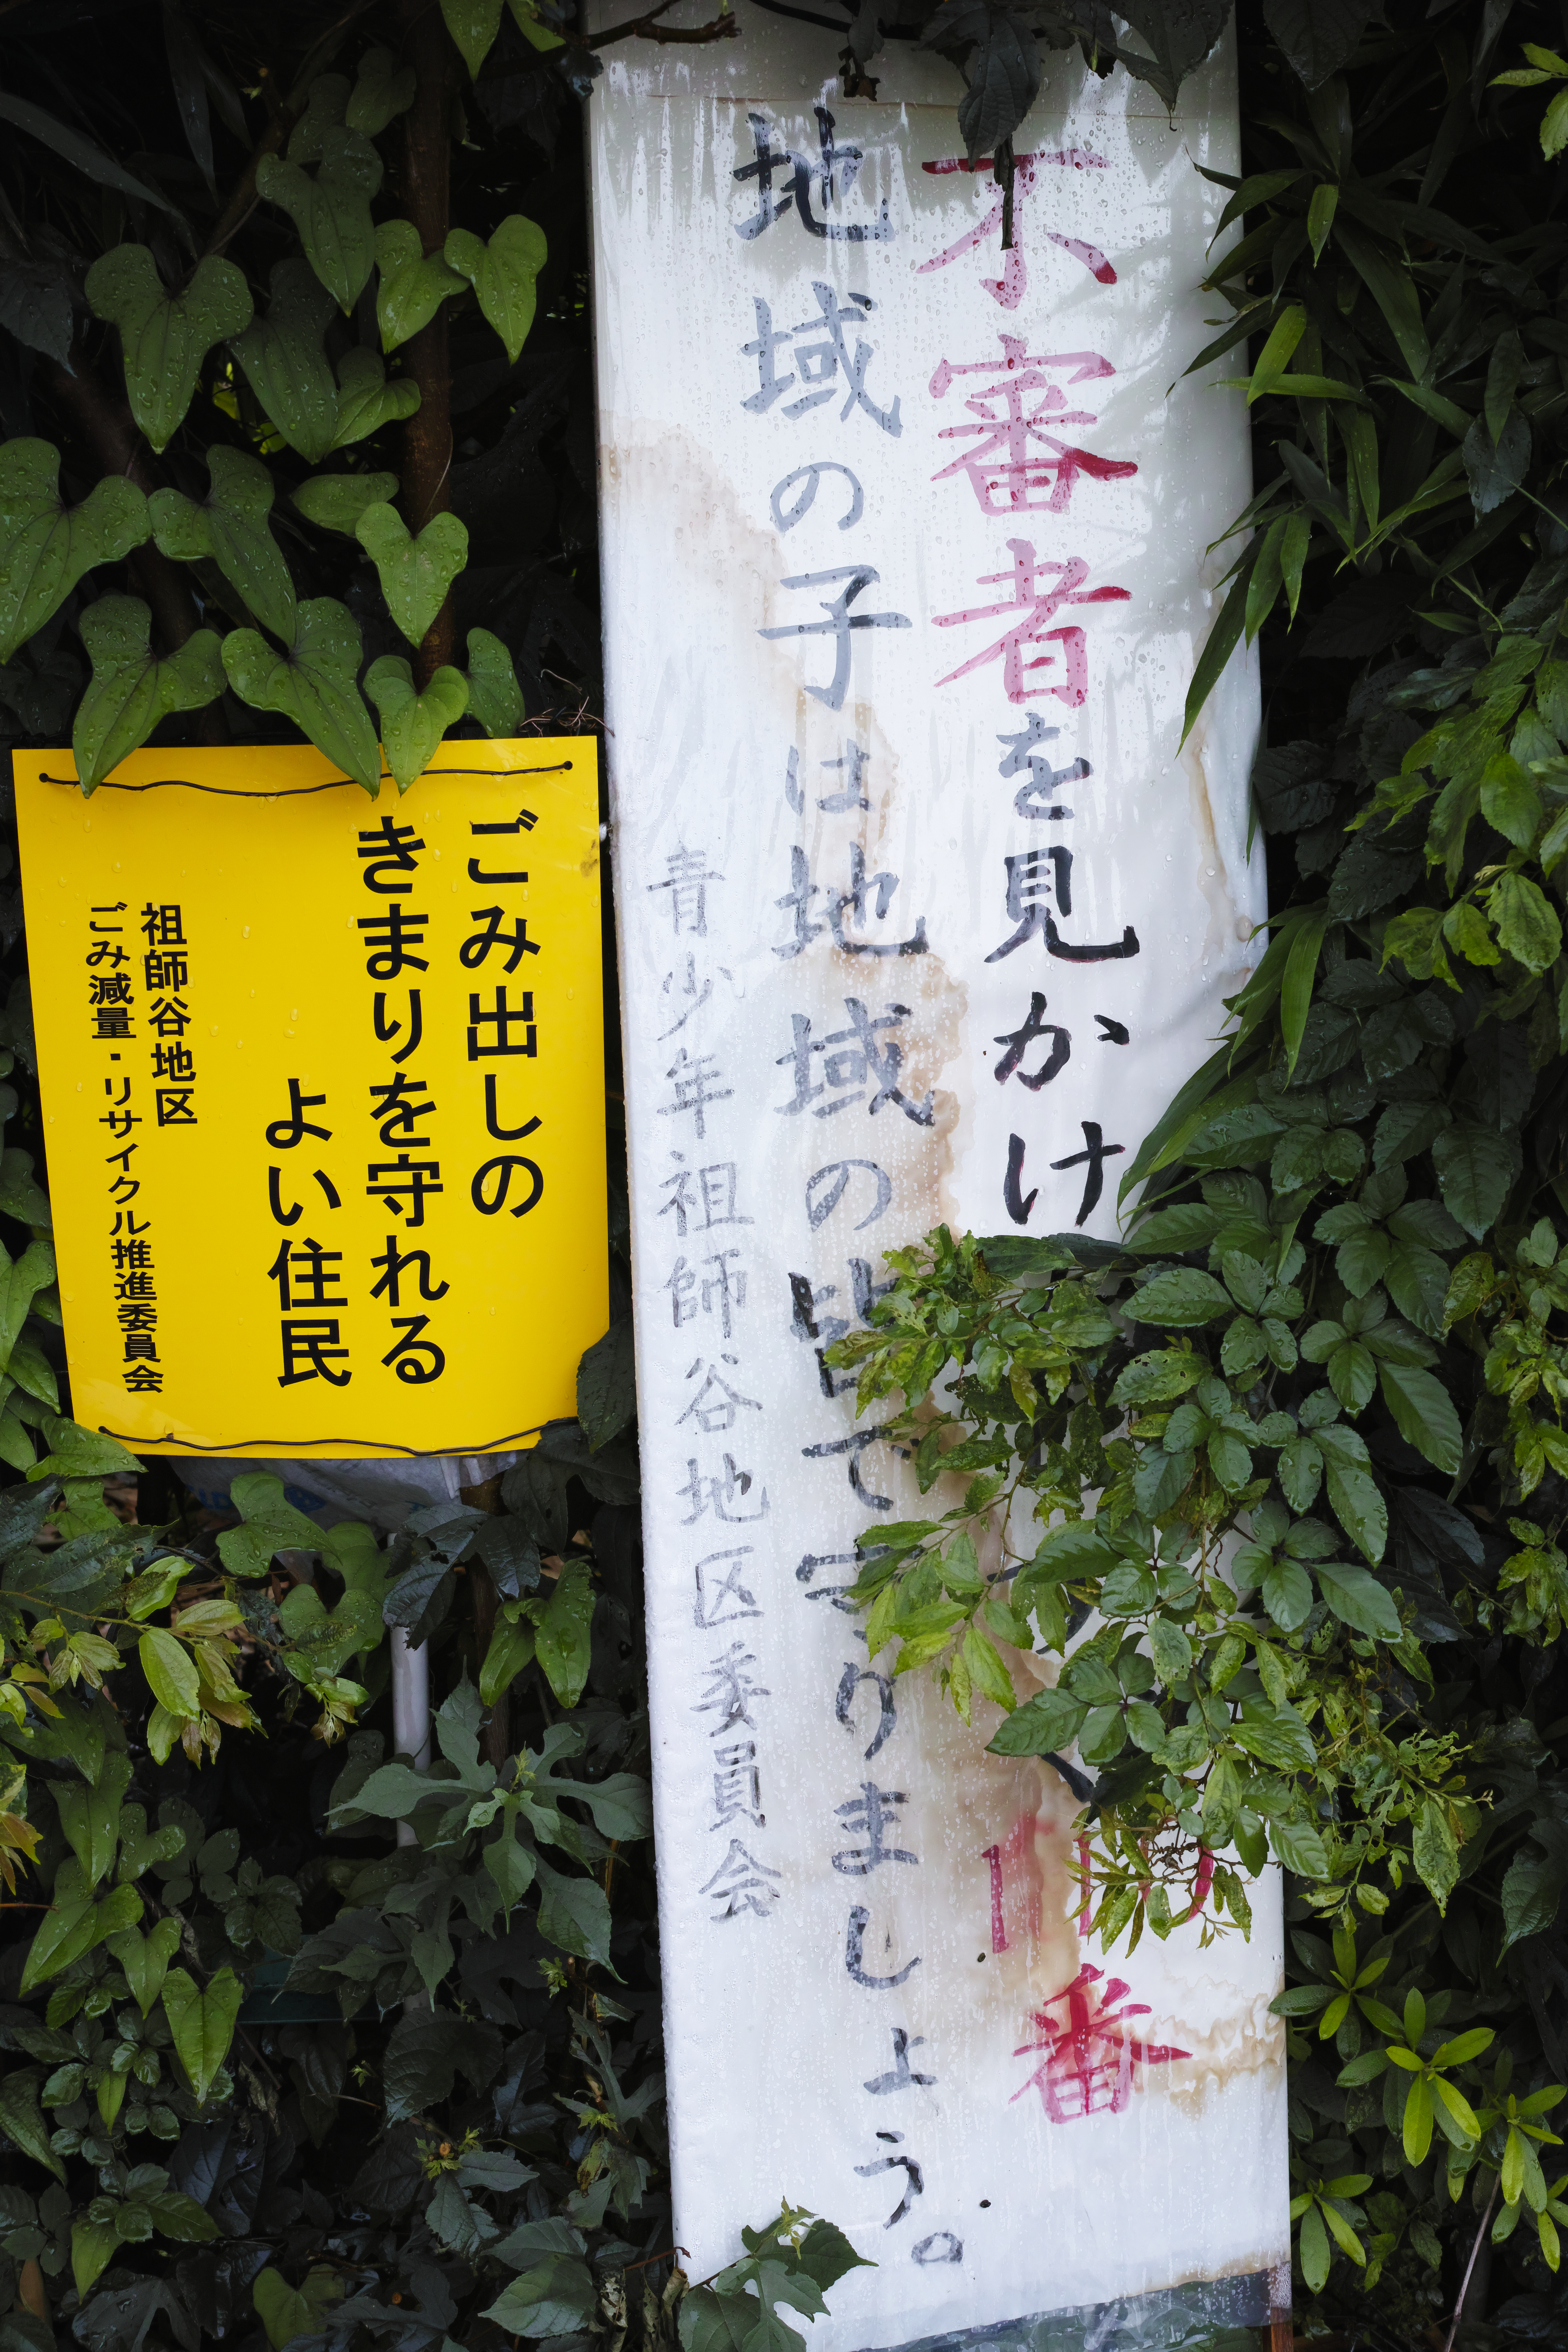 不審者を見かけ
番
地域の子は地域の皆で守りましょう。
青少年祖師谷地区委員会
ごみ出しの
きまりを守れる
よい住民
祖師谷地区
ごみ減量・リサイクル推進委員会